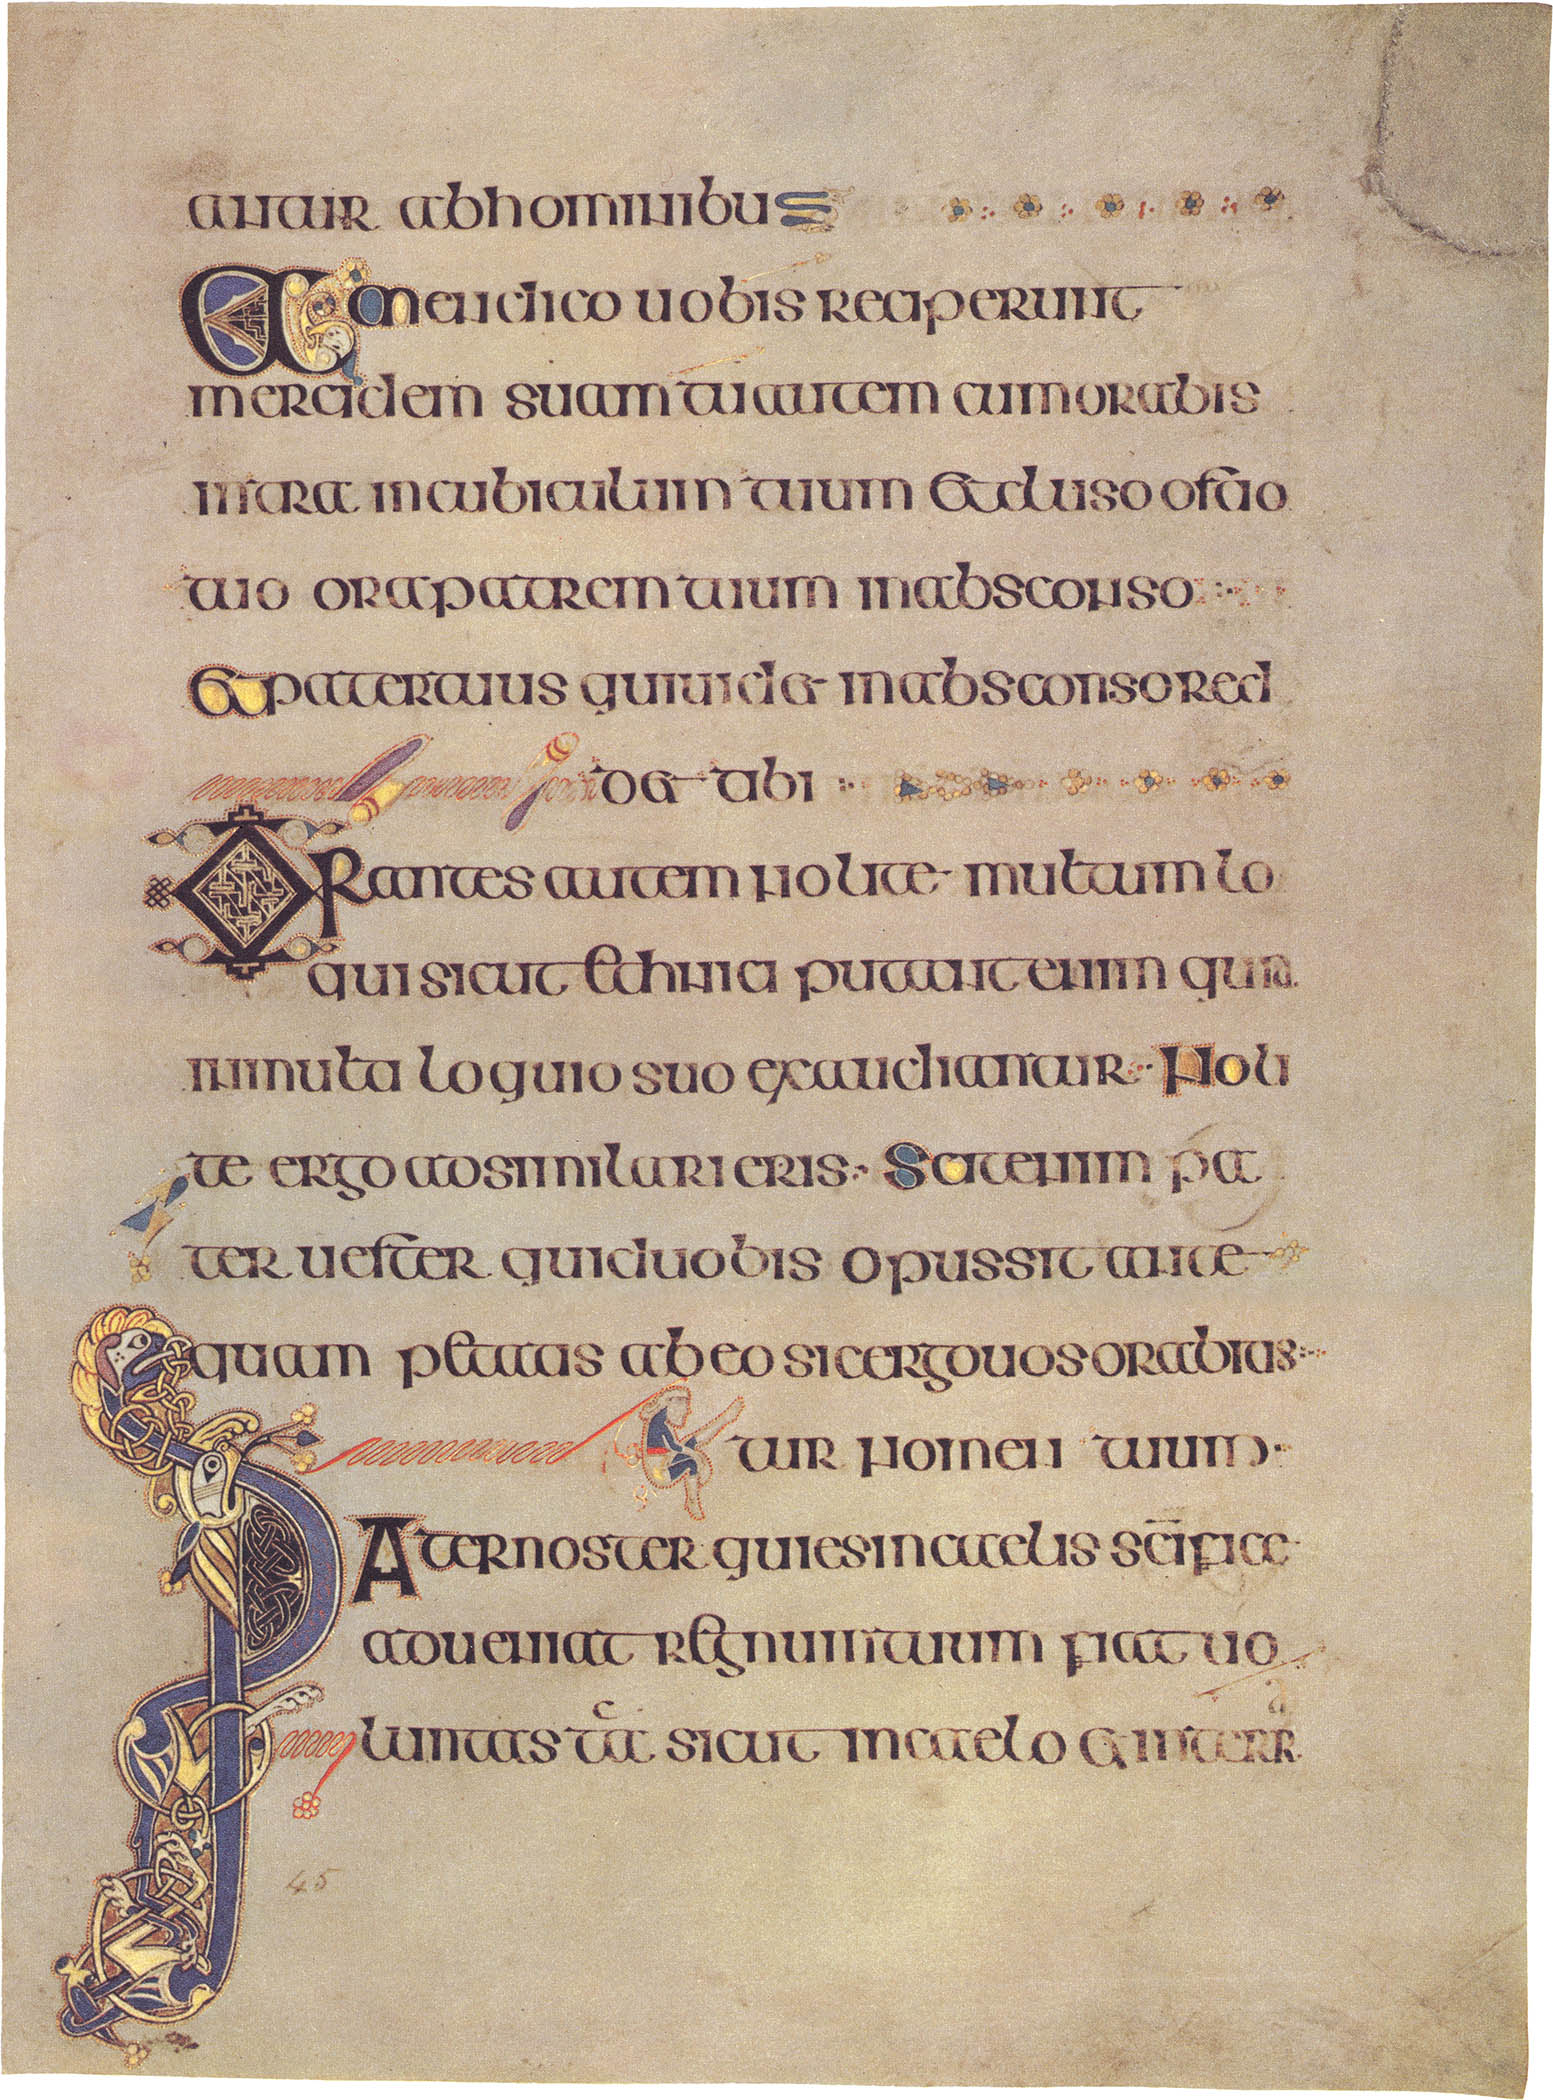 antur ab hominibus
Amen dico uobis reciperunt
mercidem suam tu autem cum orabis
intra in cubiculum tuum et cluso ostio
tuo ora patrem tuum in absconso
et pater tuus qui uidet in absconso red
det tibi
ORantes autem nolite multum lo
qui sicut ethnici putant enim quia
in multa loquio suo exaudiantur Noli
te ergo adsimilari eris Scit enim pa
ter uester quid uobis opus sit ante
quam petatis ab eo sic ergo uos orabitis
tur nomen tuum
PAter noster qui es in caelis sc̄ificae
adueniat regnum tuum fiat uo
luntas tua sicut in caelo et in terra
45